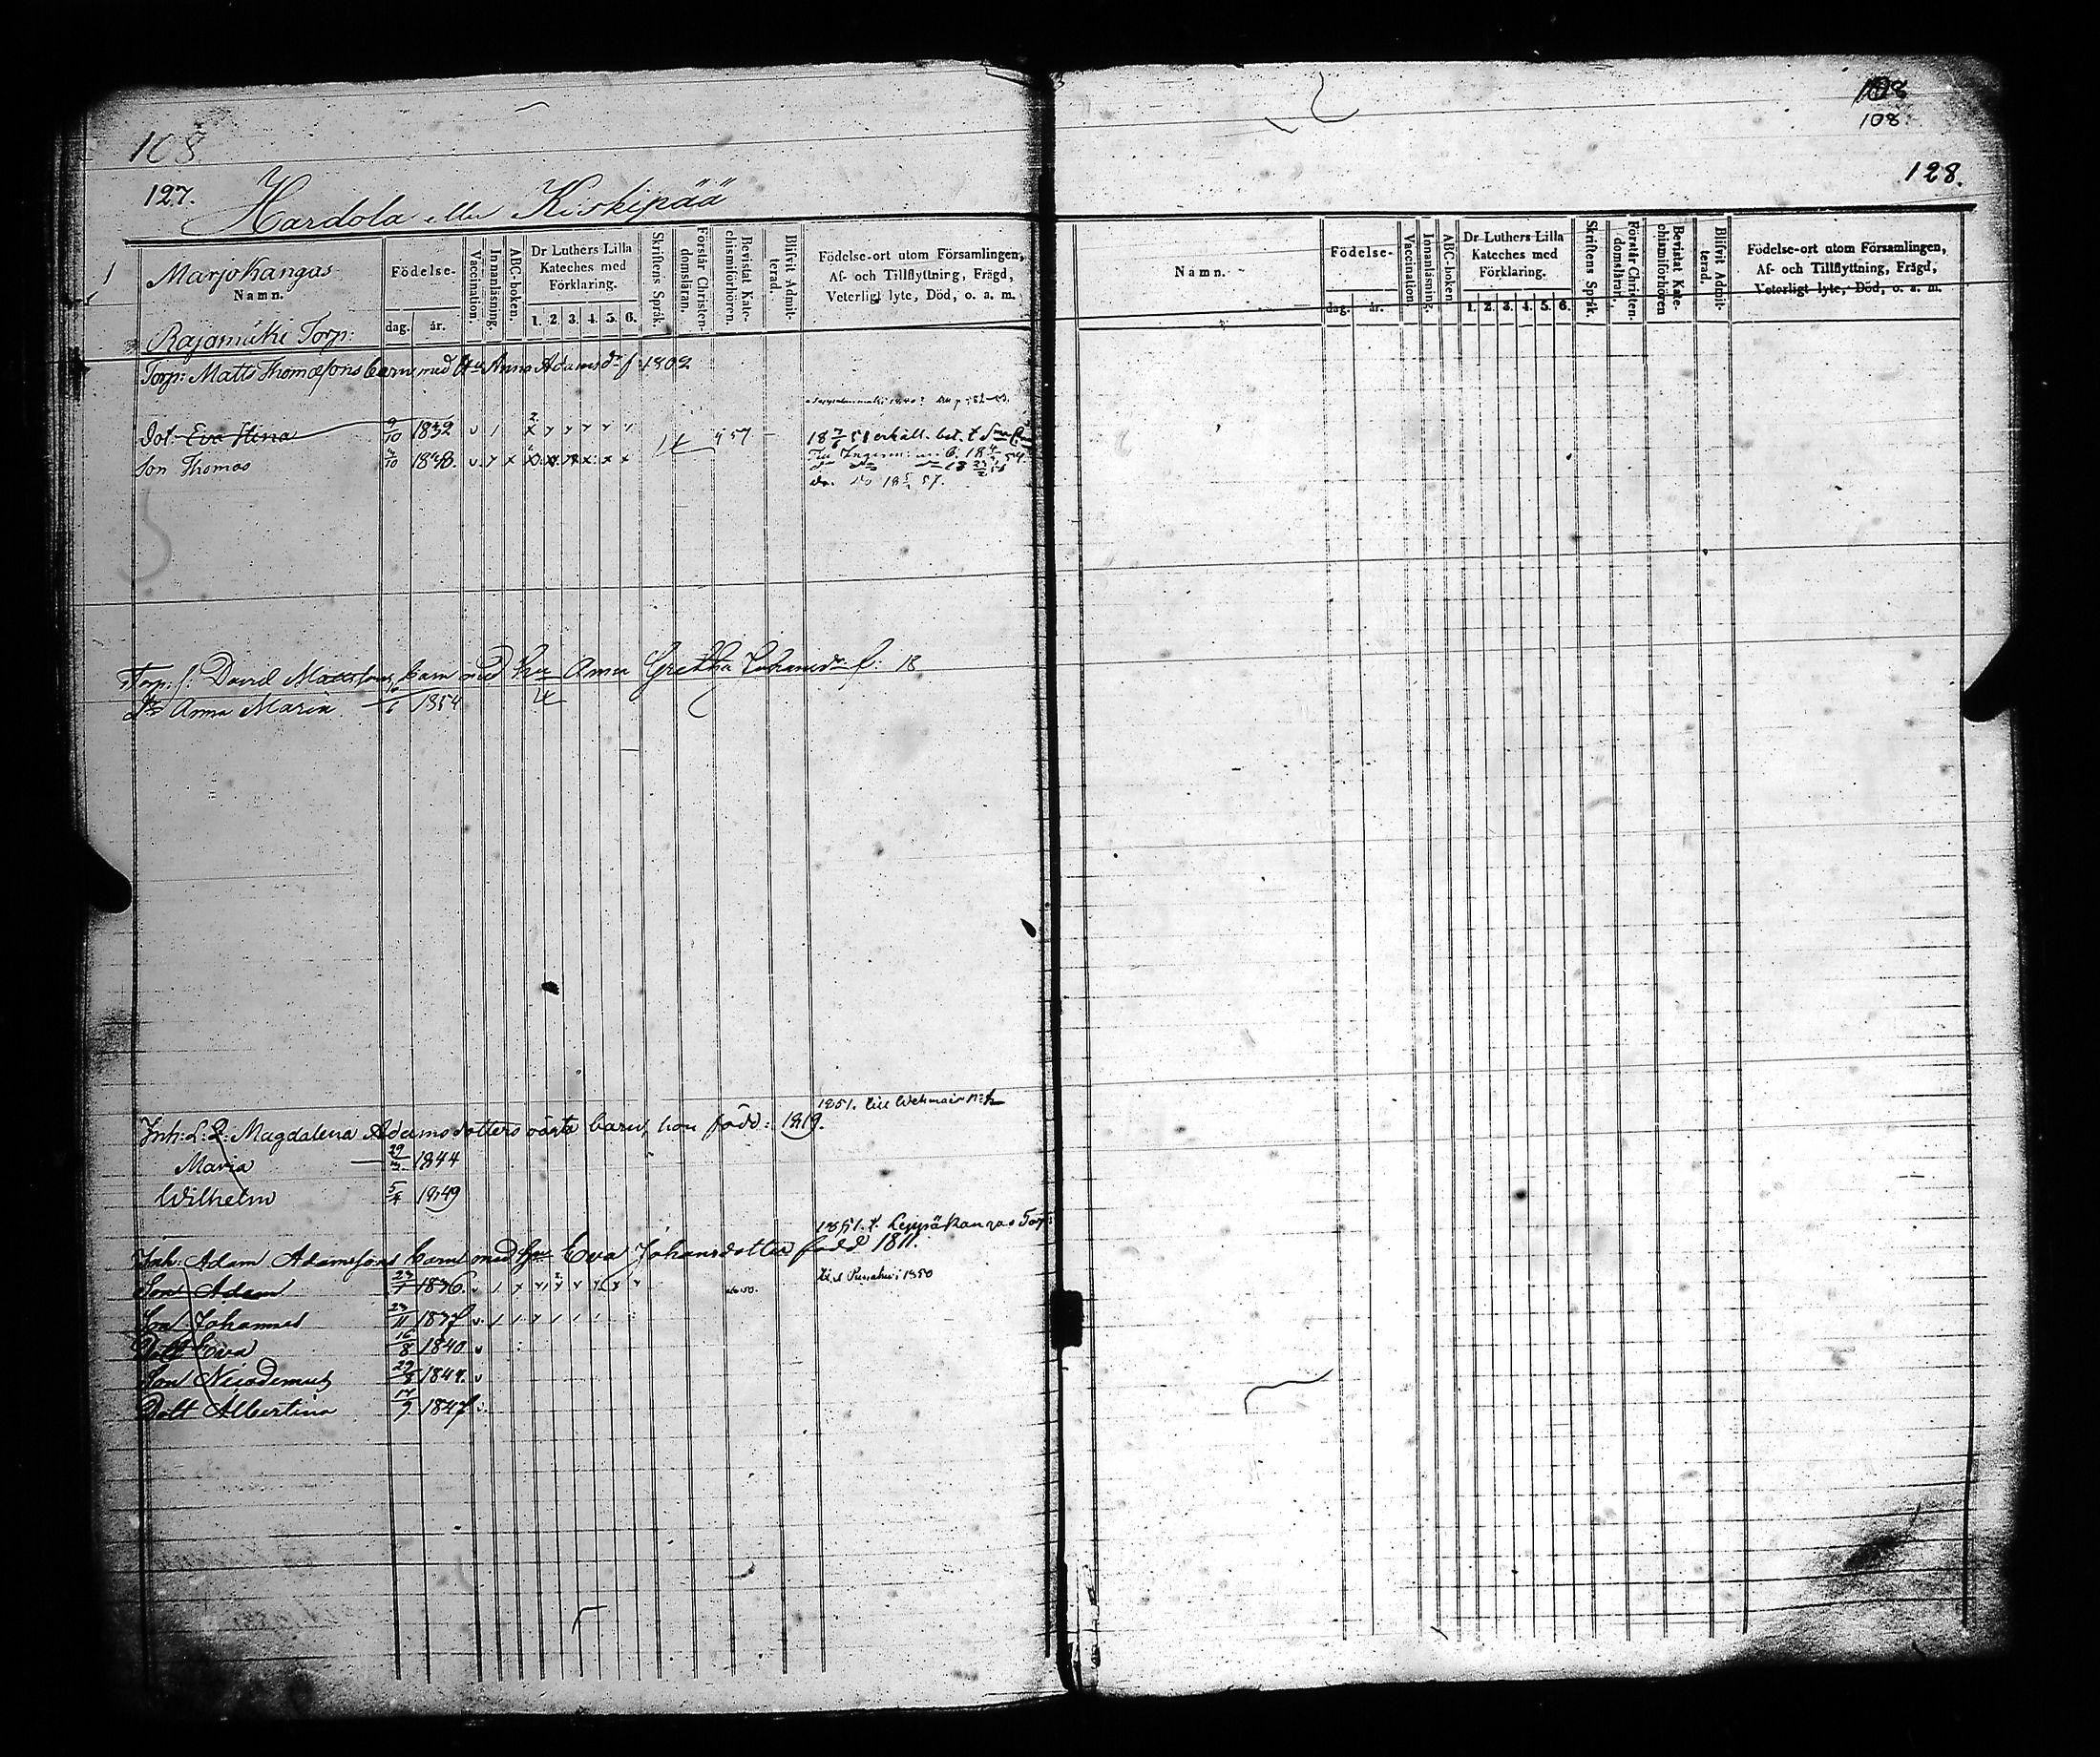 108
127.
Hardola eller Kiskipää
1
Marjokangas
Namn.
Födelse-
dag. år.
Vaccination.
Innanläsning.
ABC-boken.
Dr Luthers Lilla
Kateches med
Förklaring.
1. 2. 3. 4. 5. 6.
Skriftens Språk.
Förstår Christen-
domsläran.
Bevistat Kate-
chismiförhören.
Blifvit Admit-
terad.
Födelse-ort utom Församlingen,
Af- och Tillflyttning, Frägd,
Veterligt lyte, Död, o. a. m.
Rajamäki Torp:
Torp: Matts Thomæsons barn med Hu Anna Adamsdr f. 1802
dot. Eva Stina 9/10 1832
Son Thomas 1838.
Torp: s. David Mattssons barn med Hu Anna Gretha Johansdr f: 18
Anna Maria 6 1854
1851. till
Inh: L: Q: Magdalena Adamsdotters oäkta barn, hon född: 1819.
Maria 29/3 1844
Wilhelm 5/4 1849
1851. t. Leppäkangas Torp
Inh: Adam Adamssons barn med hu Eva Johansdotter född 1811.
Son Adam 1836. 1850
Son Johannes 23/11 1837
Dott Eva 16/8 1840
Son Nicodemus 29 1844
Dott Albertina 17/7 1847
108
108
128.
Namn.
Födelse-
dag. år.
Vaccination
Innanläsning.
ABC-boken
Dr Luthers Lilla
Kateches med
Förklaring.
1. 2. 3. 4. 5. 6.
Skriftens Språk.
Förstår Christen-
domsläran.
Bevistat Kate-
chismiförhören
Blifvit Admit-
terad.
Födelse-ort utom Församlingen,
Af- och Tillflyttning, Frägd,
Veterligt lyte, Död, o. a. m.